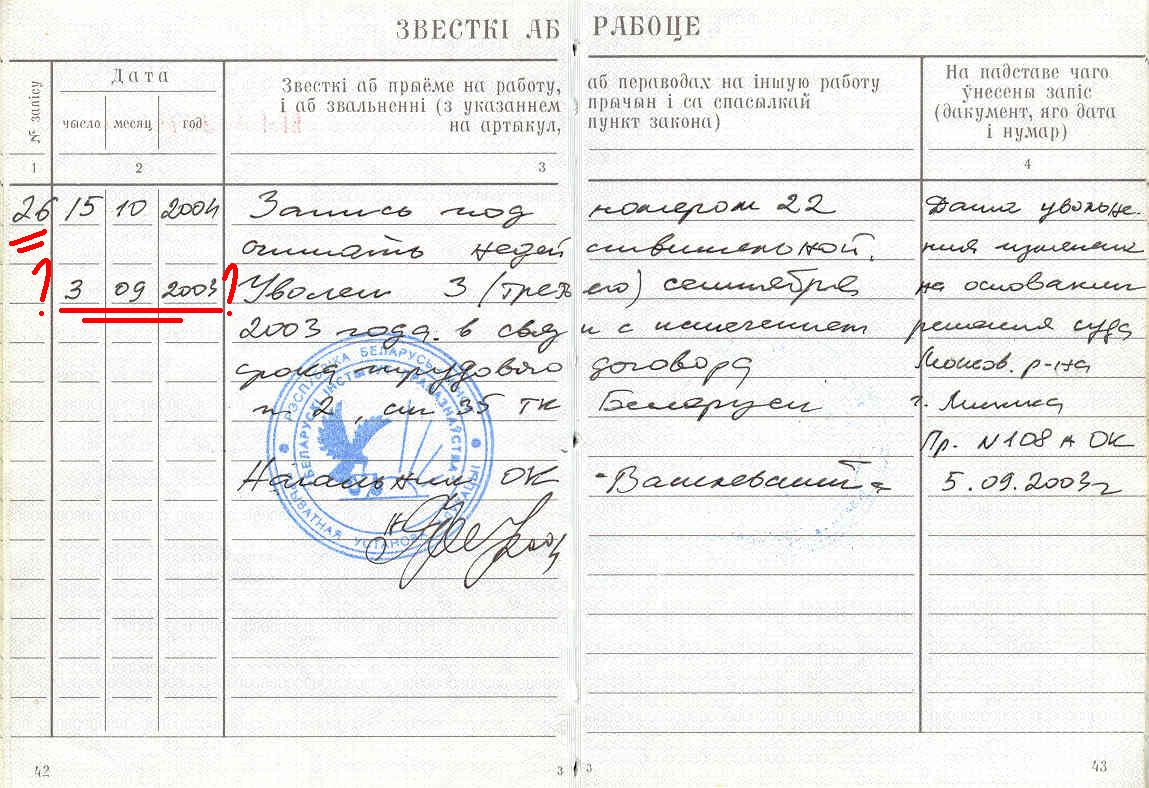 ЗВЕСТКІ АБ РАБОЦЕ
№ запісу
Дата
чысло месяц год
Звесткі аб прыёме на работу, аб пераводах на іншую работу
і аб звальненні (з указаннем прычын і са спасылкай
на артыкул, пункт закона)
На падставе чаго
ўнесены запіс
(дакумент, яго дата
і нумар)
1 2 3 4
26 15 10 2004 Запись под номером 22 Дата увольне-
считать недействительной. ния изменена
? 3 09 2003 ? Уволен 3 (третьего) сентября на основании
2003 года в связи с истечением решения суда
срока трудового договора Москов. р-на
п 2, ст 35 ТК Беларуси г. Минска
Пр. N 108 А ОК
Начальник ОК 5.09.2003г
РЭСПУБЛІКА БЕЛАРУСЬ
БЕЛАРУСКІ ІНСТЫТУТ ПРАВАЗНАЎСТВА
ПРЫВАТНАЯ УСТАНОВА АДУКАЦЫІ
42 3 3 43